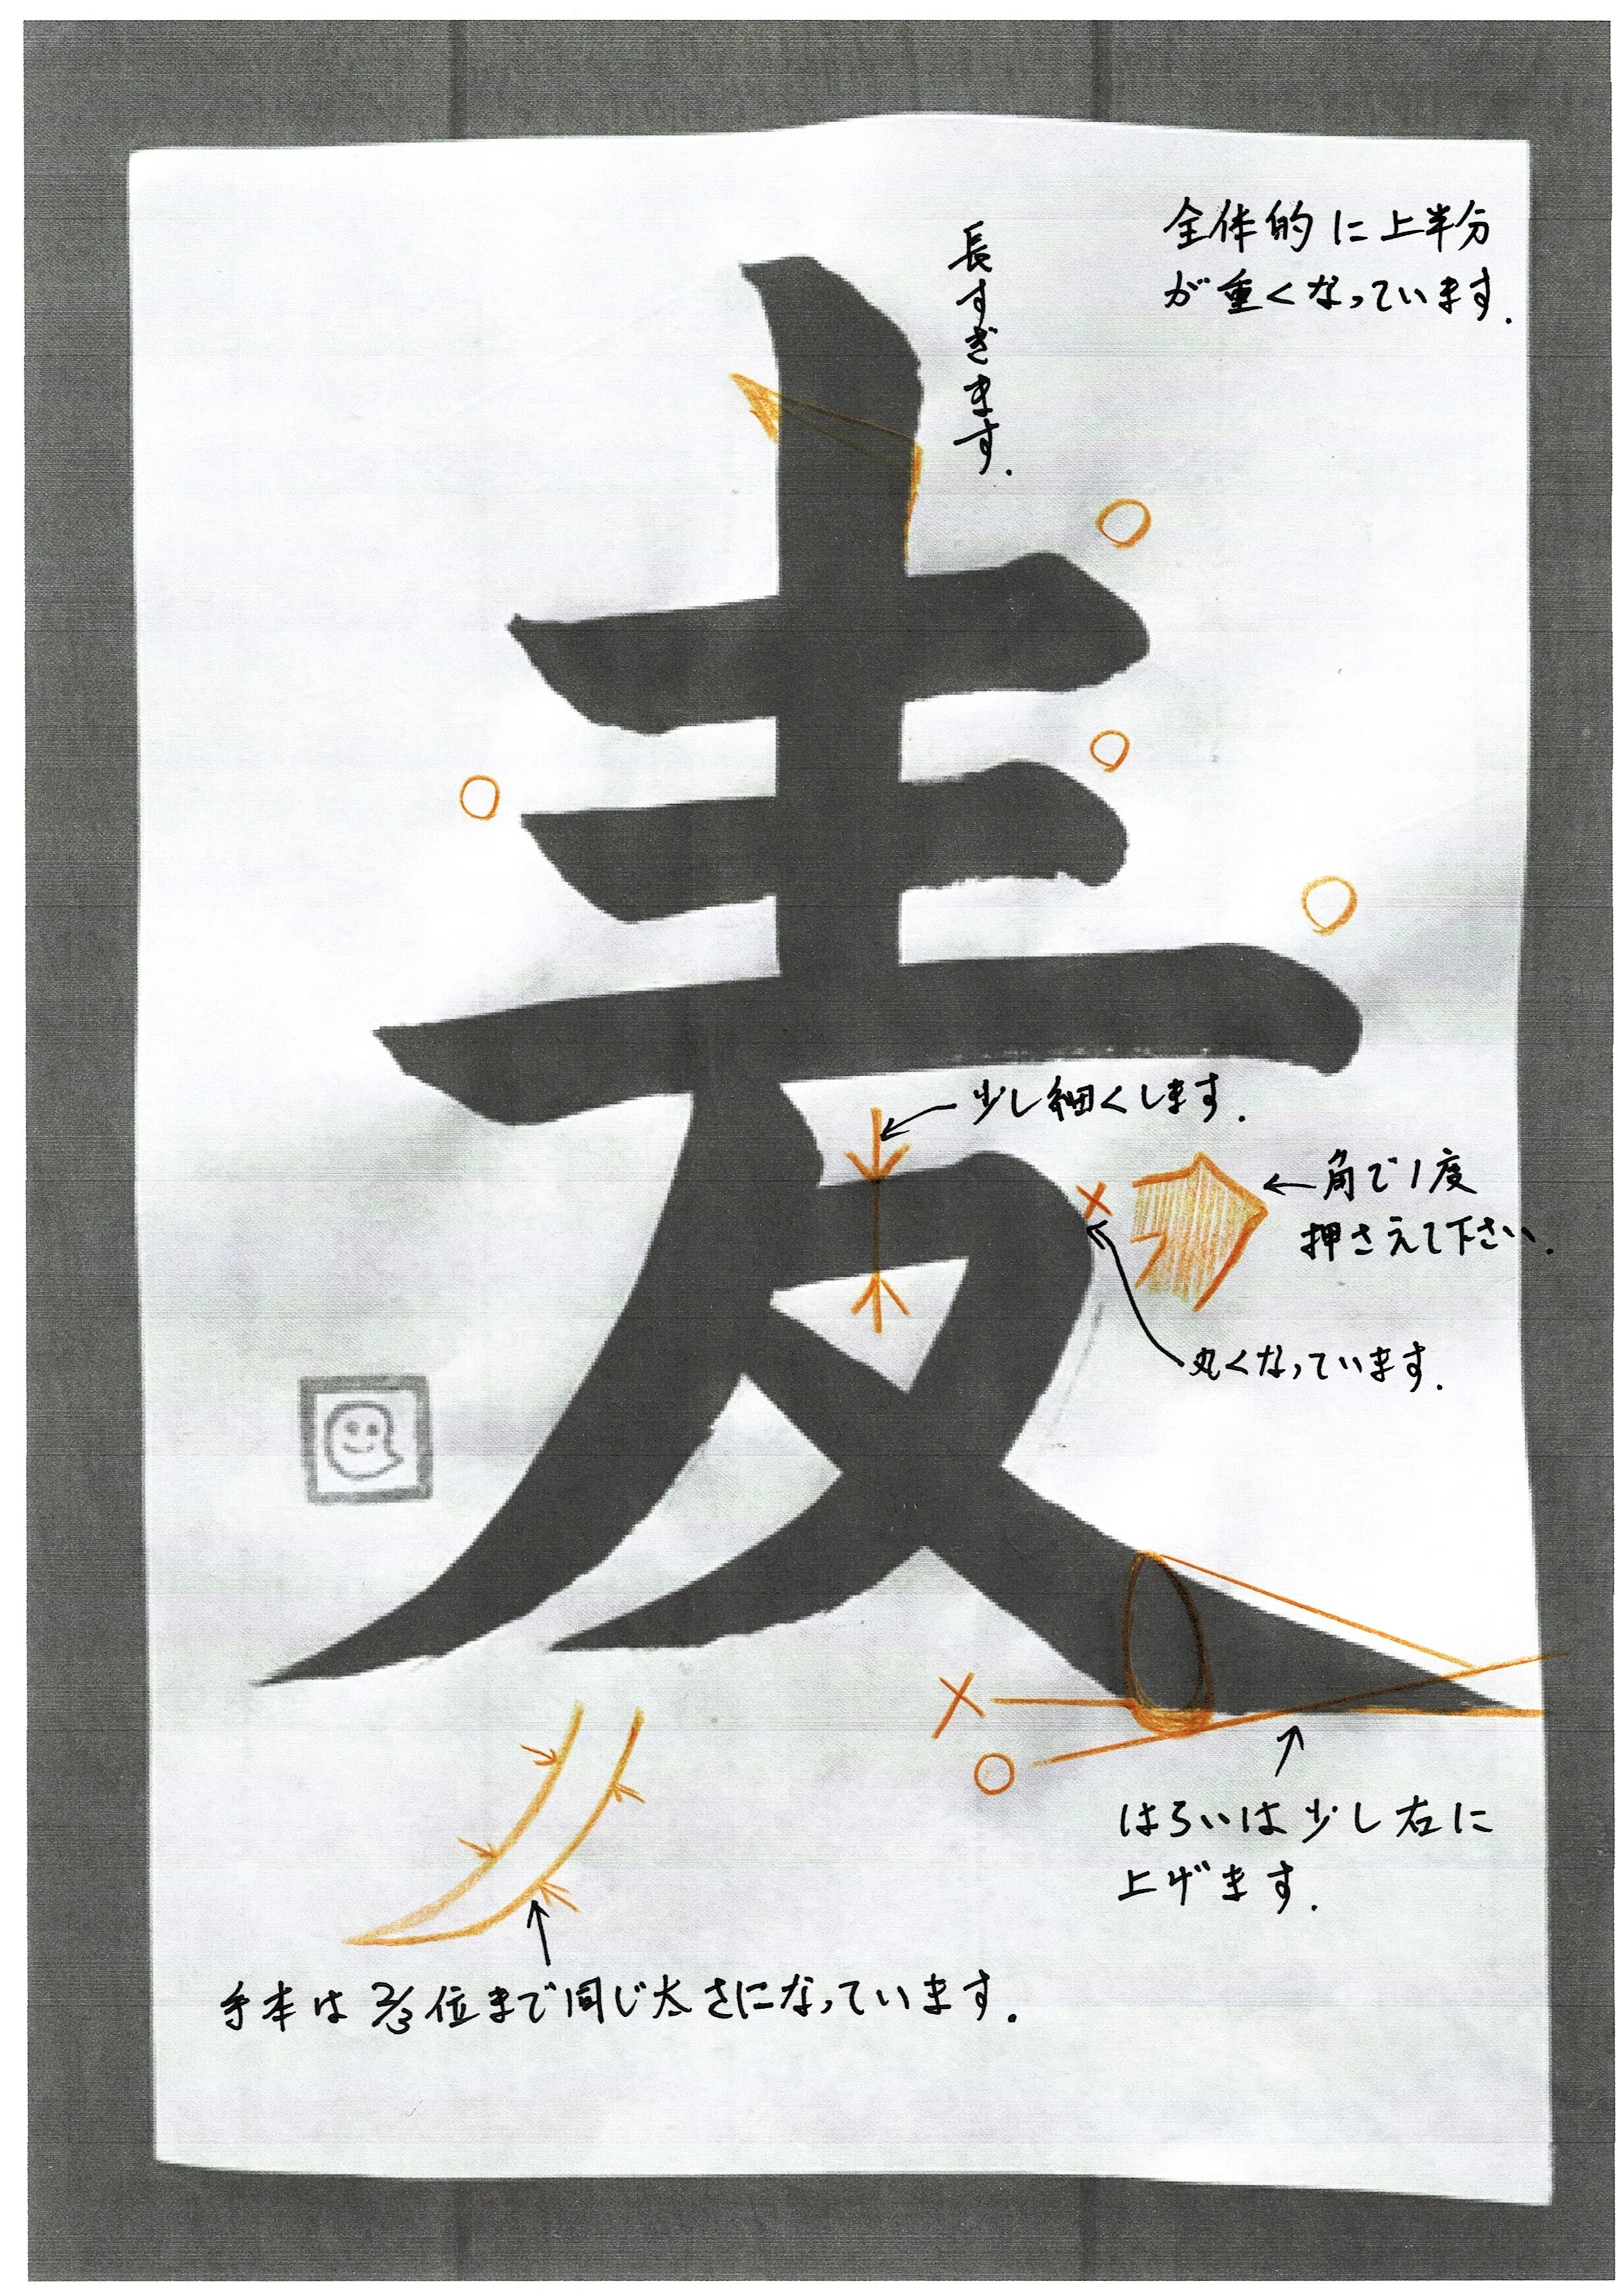 全体的に上半分
が重くなっています.
長すぎます.
麦
少し細くします.
角で1度
押さえて下さい.
丸くなっています.
はらいは少し右に
上げます.
手本は2/3位まで同じ太さになっています.